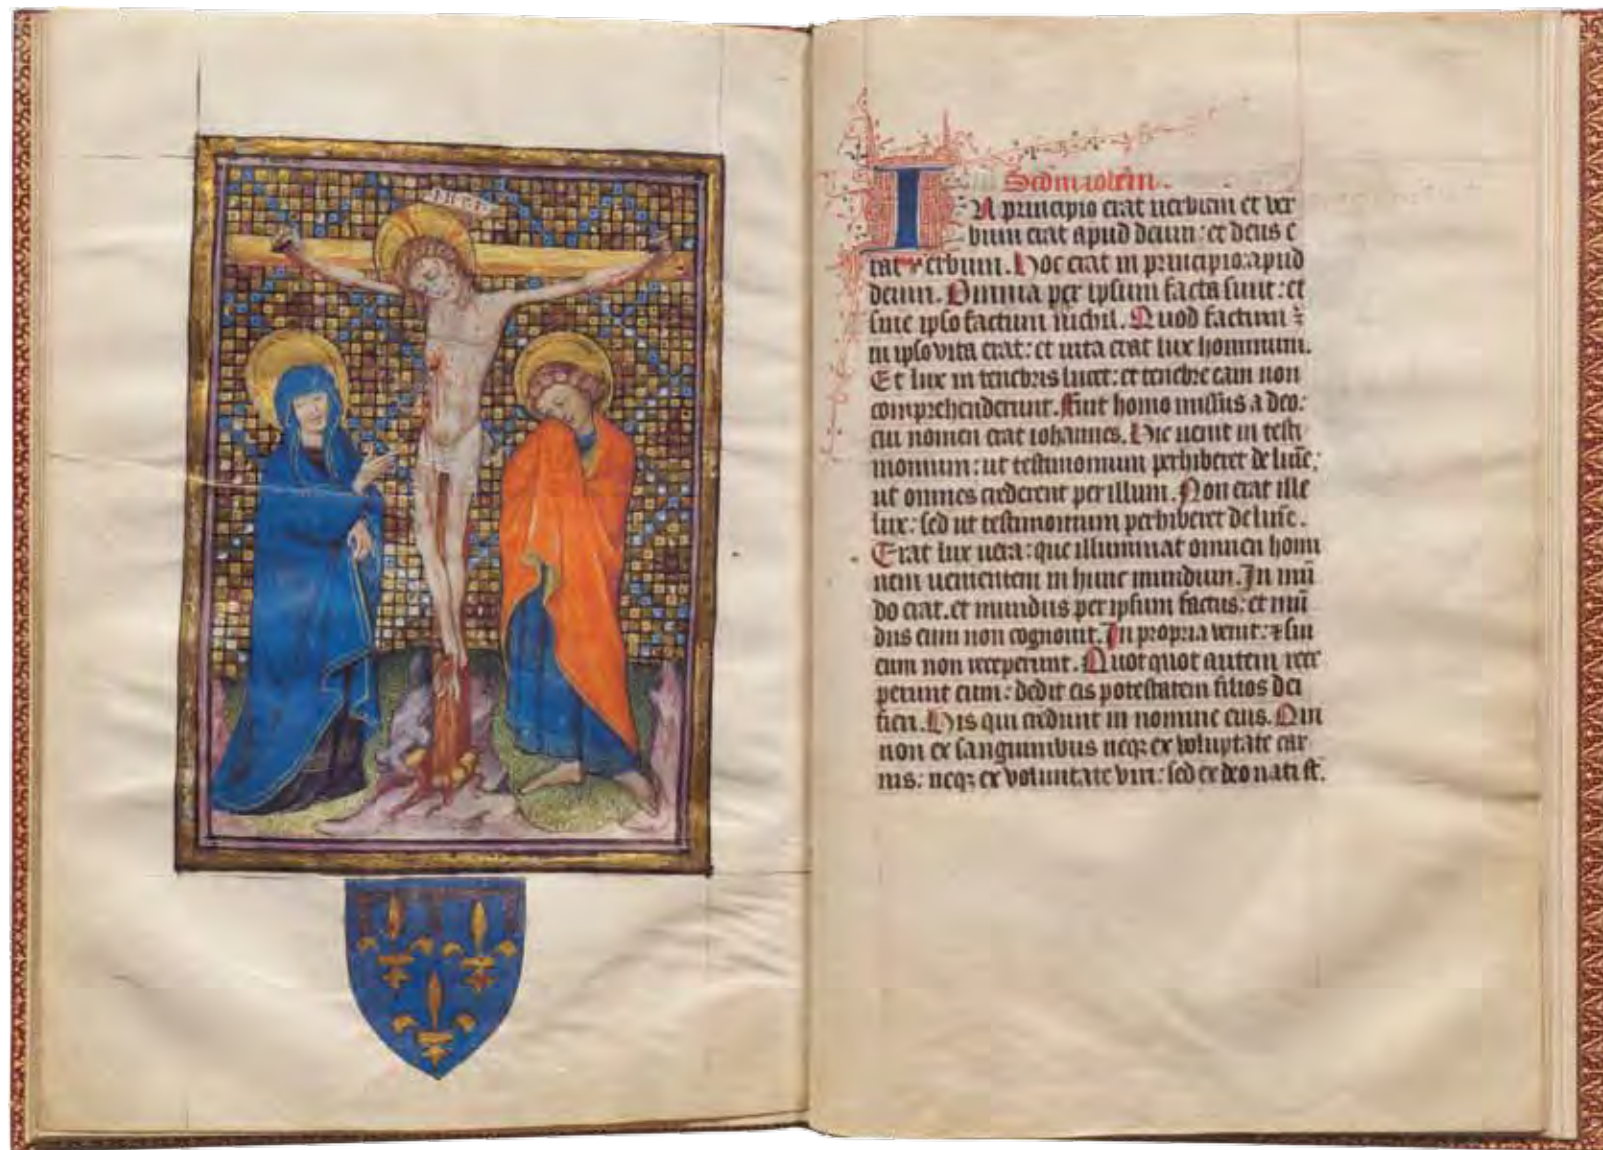 INRI
Scdm iohem.
IN principio erat uerbum et ver
bum erat apud deum: et deus e
rat verbum. Hoc erat in principio apud
deum. Omnia per ipsum facta sunt: et
sine ipso factum nichil. Quod factum ē
in ipso vita erat: et uita erat lux hominum.
Et lux in tenebris lucet: et tenebre eam non
comprehenderunt. Fuit homo missus a deo:
cui nomen erat iohannes. Hic uenit in testi
monium: ut testimonium perhiberet de lumīe:
ut omnes crederent per illum. Non erat ille
lux: sed ut testimonium perhiberet de lumīe.
Erat lux uera: que illuminat omnem homi
nem uenientem in hunc mundum. In mū
do erat. et mundus per ipsum factus: et mū
dus eum non cognouit. In propria venit: ⁊ sui
eum non receperunt. Quot quot autem rece
perunt eum: dedit eis potestatem filios dei
fieri. His qui credunt in nomine eius. Qui
non ex sanguinibus neqꝫ ex voluptate car
nis: neqꝫ ex voluntate viri: sed ex deo nati sūt.